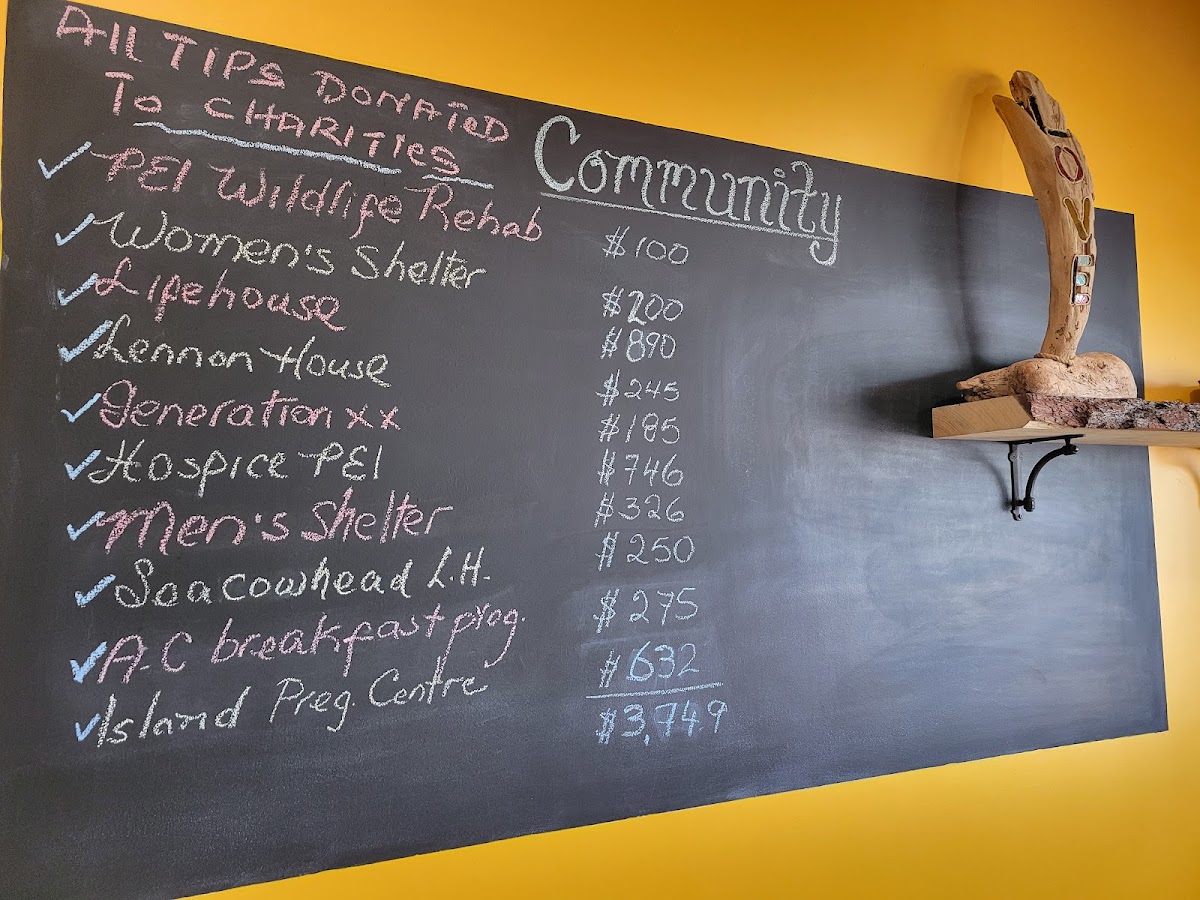 All TIPS DONATED
To CHARITIES
Community
✓ PEI Wildlife Rehab $100
✓ Women's Shelter $200
✓ Lifehouse $890
✓ Lennon House $245
✓ Generation xx $185
✓ Hospice PEI $746
✓ Men's Shelter $326
✓ Seacowhead L.H. $250
✓ A.C breakfast prog. $275
✓ Island Preg. Centre $632
$3,749
LOVE